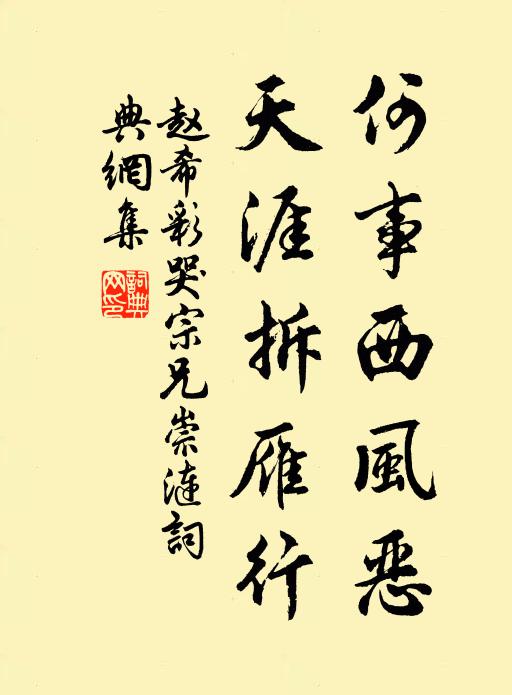 何事西風惡
天涯拆雁行
赵希彰哭宗兄崇漣詞
典網集
詞典網印